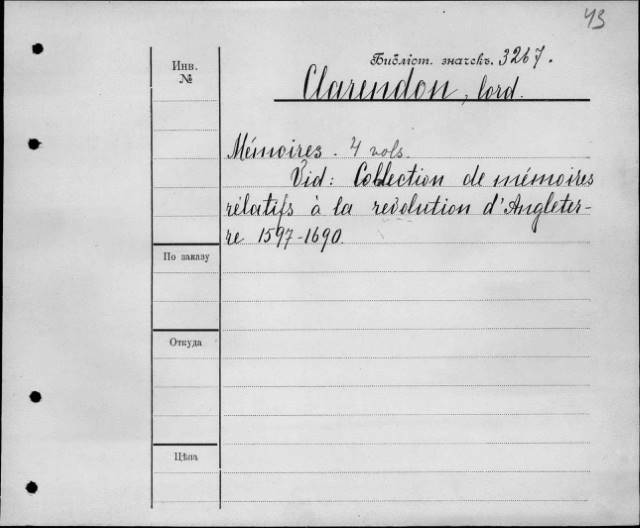 43
Инв.
№
Библіот. значекъ. 3267.
Clarendon, lord.
Mémoires. 4 vols.
Vid: Collection de mémoires
rélatifs à la revolution d'Angleter-
re 1597-1690.
По заказу
Откуда
Цѣна